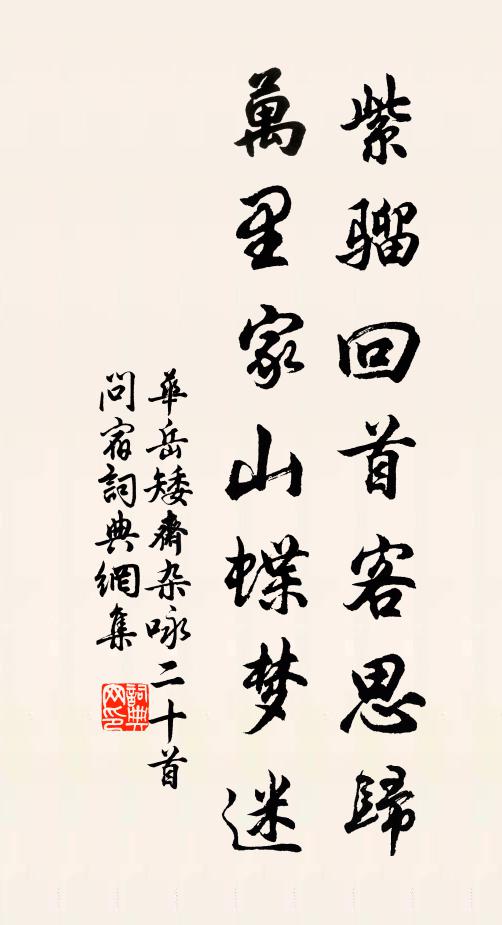 紫骝回首客思歸
萬里家山蝶梦迷
華岳矮齋杂咏二十首
问宿詞典網集
詞典
网印